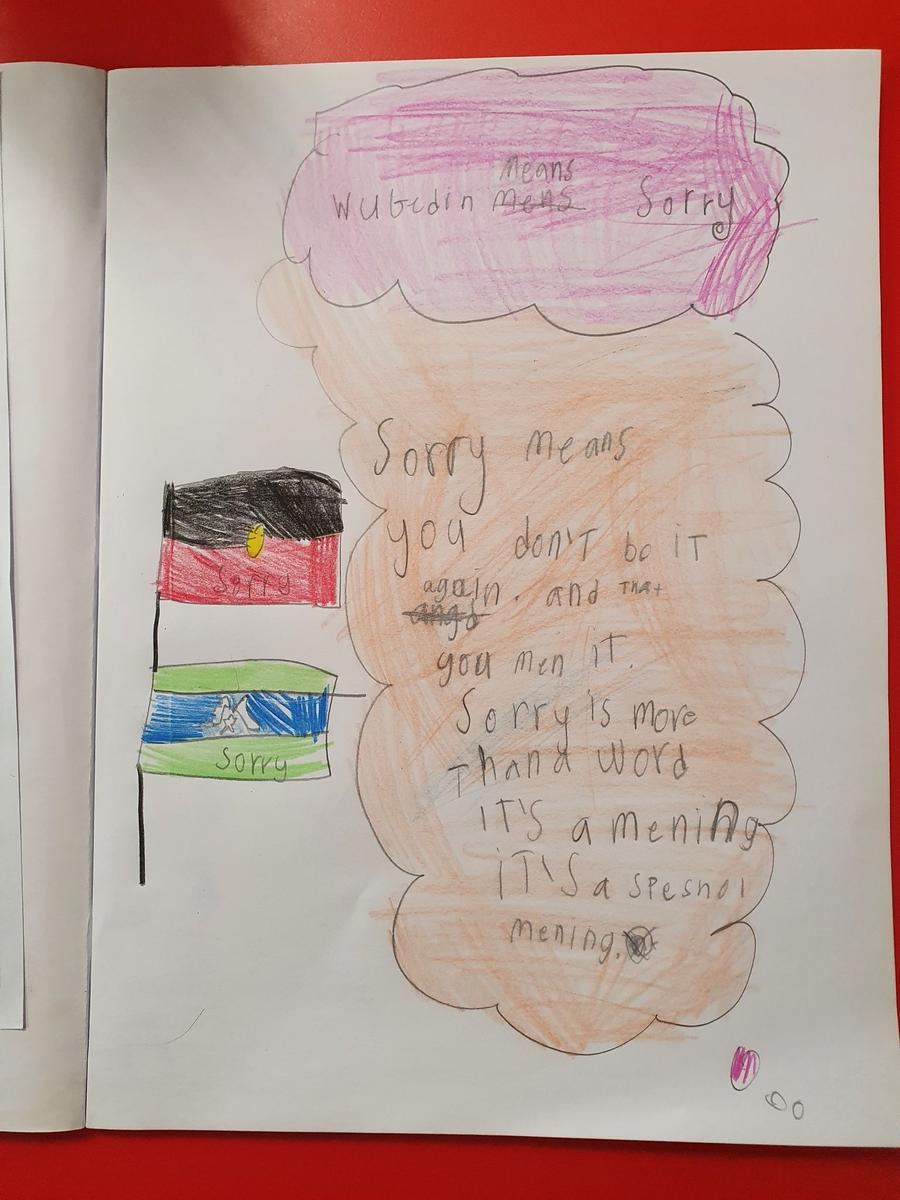 means
Wubedin mens Sorry
Sorry means
you don't bo it
again. and that
you men it.
Sorry is more
Than a word
IT'S a mening
IT'S a spesnol
mening.
Sorry
Sorry